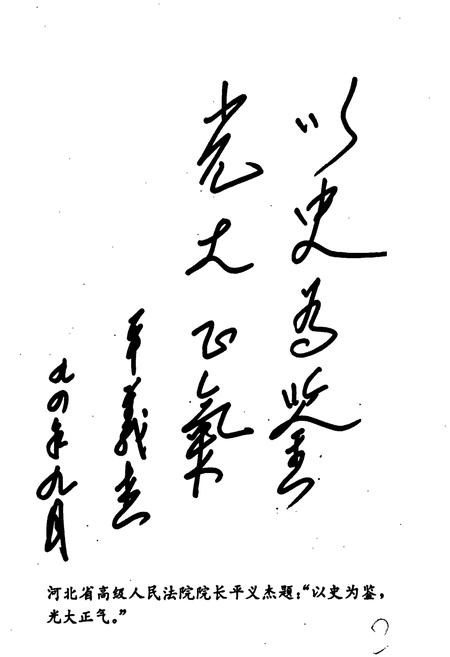 以史为鉴
光大正氣
平義杰
九四年九月
河北省高级人民法院院长平义杰题：“以史为鉴，
光大正气。”